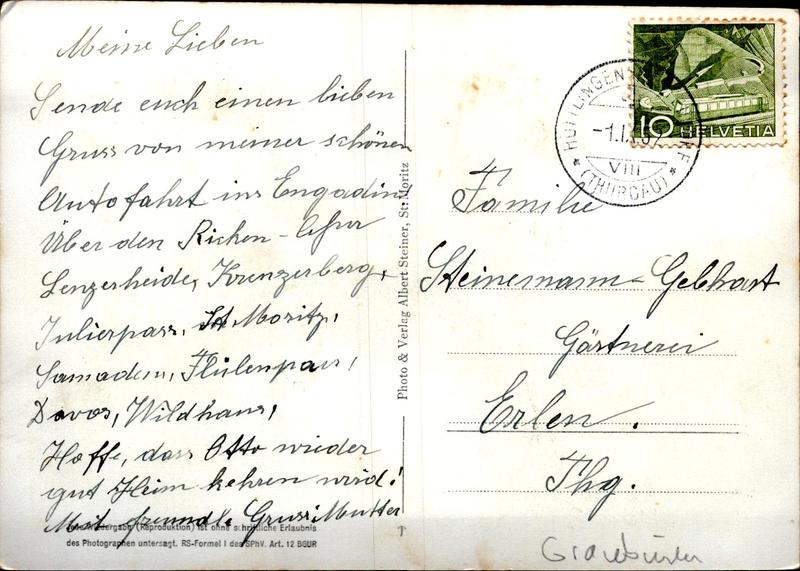 Meine Lieben
Sende euch einen lieben
Gruss von meiner schönen
Autofahrt ins Engadin,
Über den Ricken - Chur
Lenzerheide, Krenzerberg,
Julierpass, St. Moritz,
Samaden, Flülenpass,
Davos, Wildhaus,
Hoffe, dass Otto wieder
gut Heim kehren wird!
Mit freundl. Gruss: Mutter
Jede Wiedergabe (Reproduktion) ist ohne schriftliche Erlaubnis
des Photographen untersagt. RS-Formel I des SPhV. Art. 12 BGUR
Photo & Verlag Albert Steiner, St. Moritz
10 HELVETIA
HÜTTLINGEN
VIII
(THURGAU)
Familie
Steinemann-Gebhart
Gärtnerei
Erlen.
Thg.
Graubünden